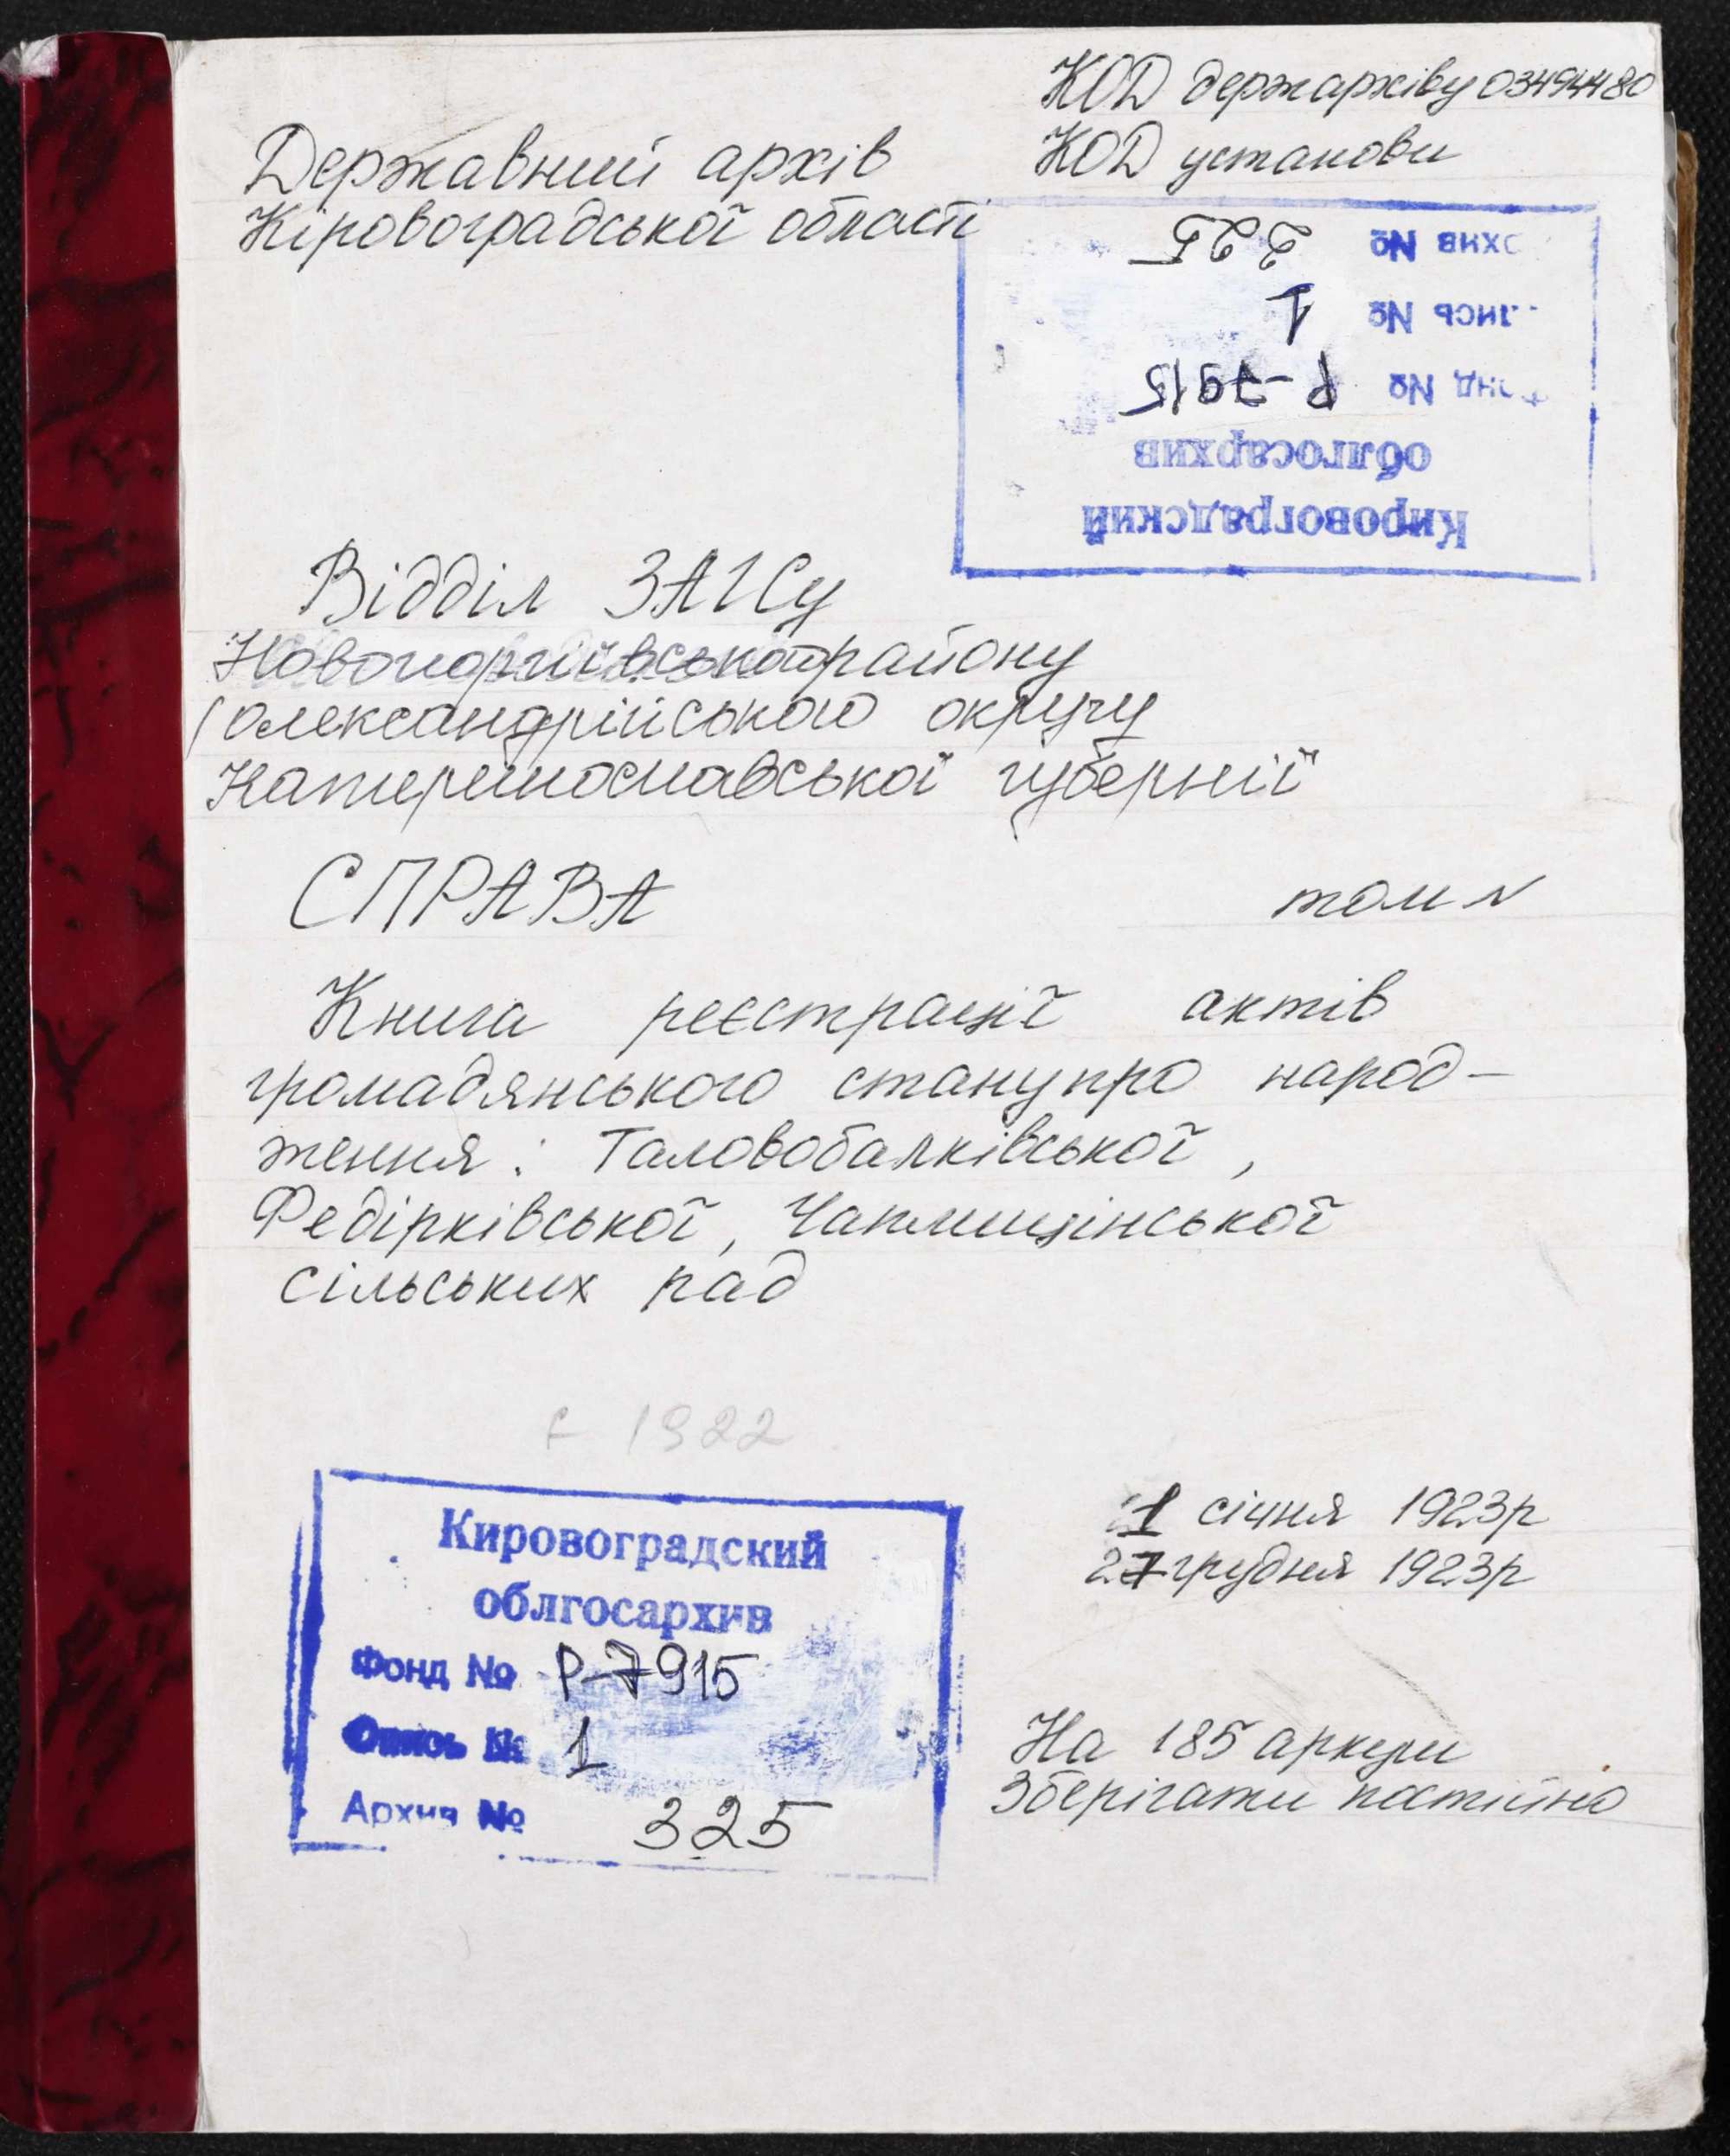 КОД держархіву 03494480
Державний архів
Кіровоградської області
КОД установи
Кировоградский
облгосархив
Фонд № Р-7915
лись № 1
рхив № 225
Відділ ЗАГСу
Новогеоргіївського району
Олександрійського округу
Катеринославської губернії
СПРАВА
том N
Книга реєстрації актів
громадянського стану про народ-
ження: Таловобалківської,
Федірківської, Чаплищінської
сільських рад
1922
1 січня 1923р
27 грудня 1923р
Кировоградский
облгосархив
Фонд № Р-7915
Опись № 1
Архив № 325
На 185 аркуш
Зберігати постійно